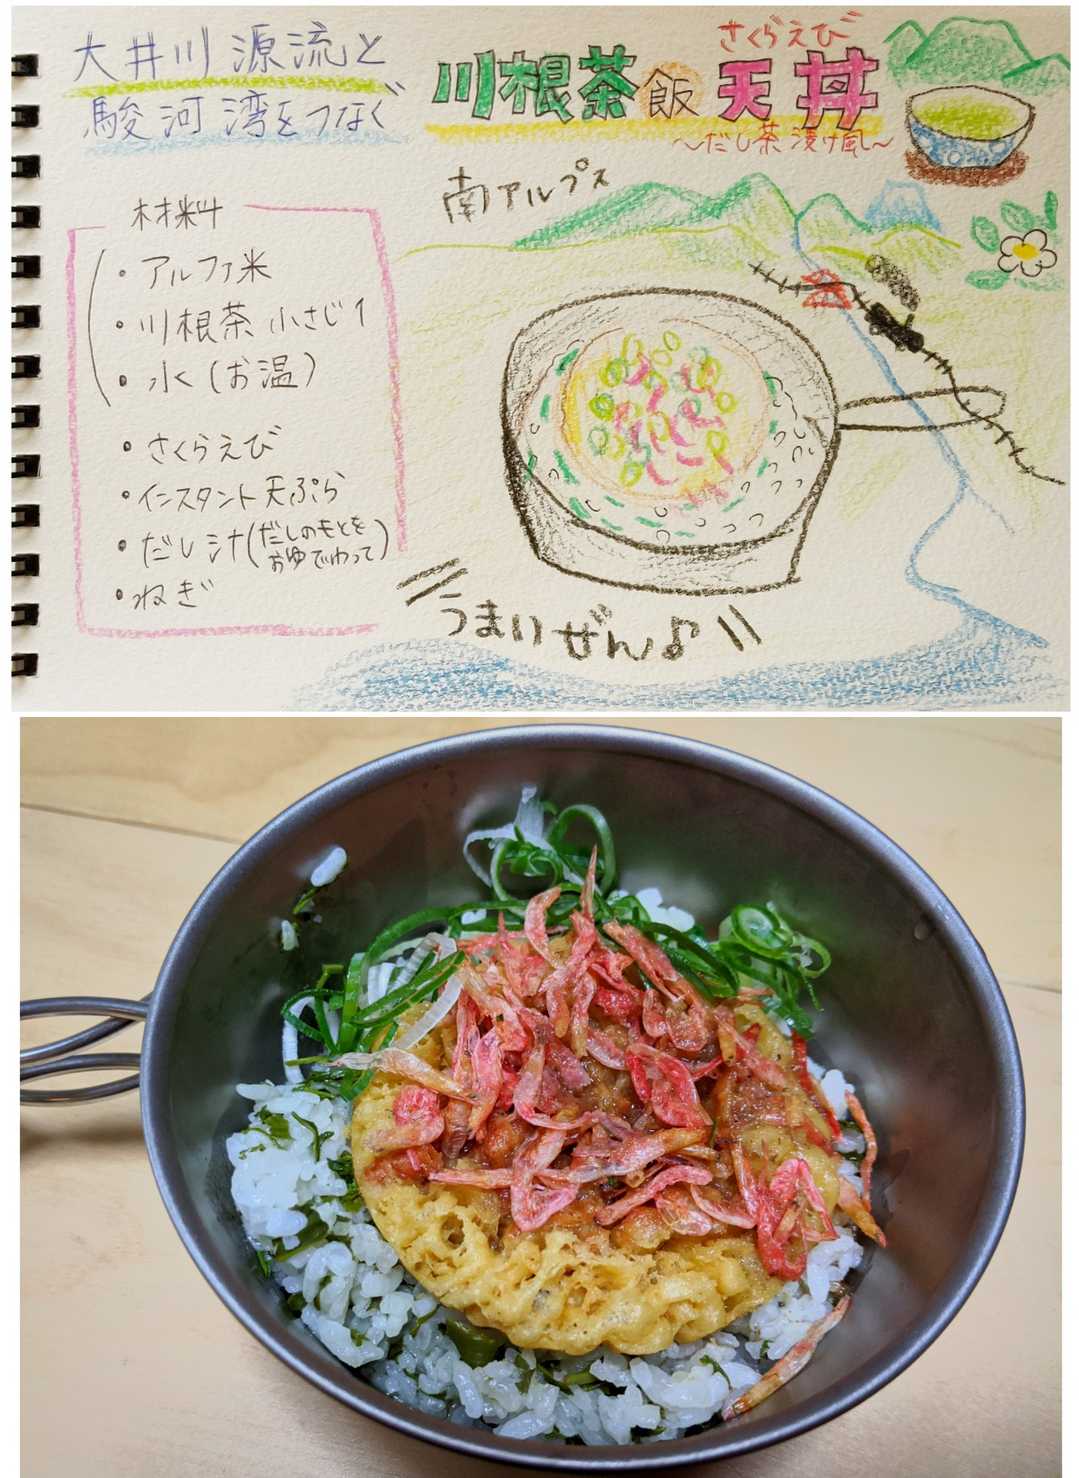 大井川源流と
駿河湾をつなぐ
さくらえび
川根茶飯天丼
～だし茶漬け風～
南アルプス
材料
・アルファ米
・川根茶 小さじ1
・水(お温)
・さくらえび
・インスタント天ぷら
・だし汁(だしのもとを
おゆでわって)
・ねぎ
うまいぜん♪